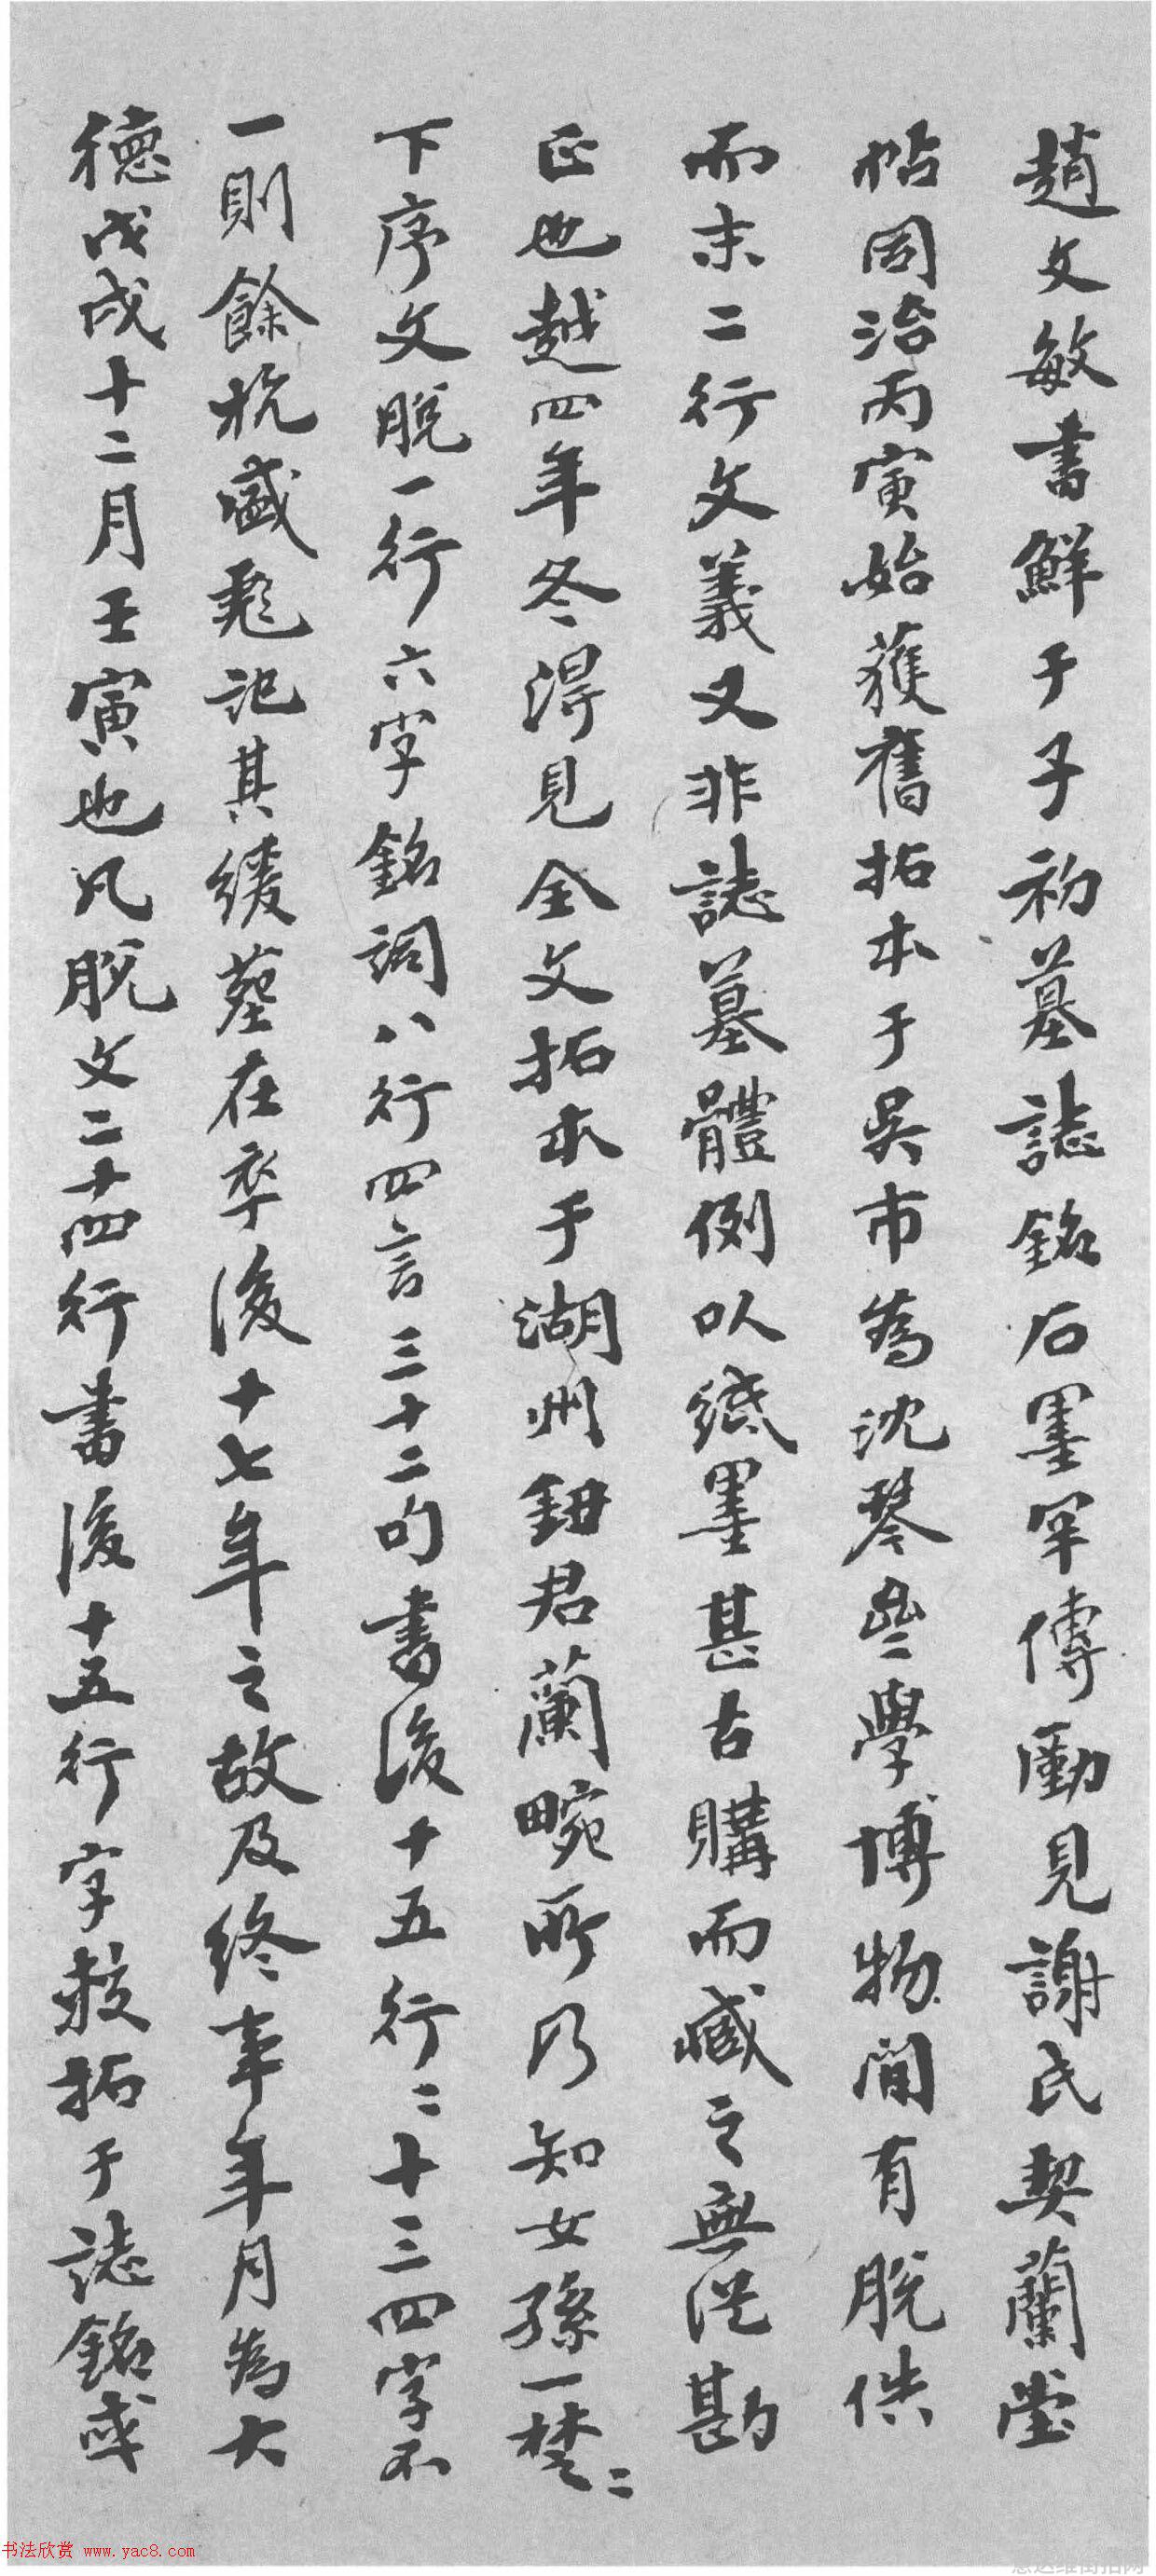 趙文敏書鮮于子初墓誌銘石墨罕傳勵見謝氏契蘭堂
帖同治丙寅始獲舊拓本于吳市為沈琴學博物間有脫佚
而末二行文義又非誌墓體例以紙墨甚古購而藏之無從勘
正也越四年冬得見全文拓本于湖州鈕君蘭畹所乃知女孫一楚二
下序文脫一行六字銘詞八行四言三十二句書後十五行二十三四字不
一則餘杭盛彪記其緩塟在卒後十七年之故及終事年月為大
德戊戌十二月壬寅也凡脫文二十四行書後十五行字數拓于誌銘或
书法欣赏 www.yac8.com